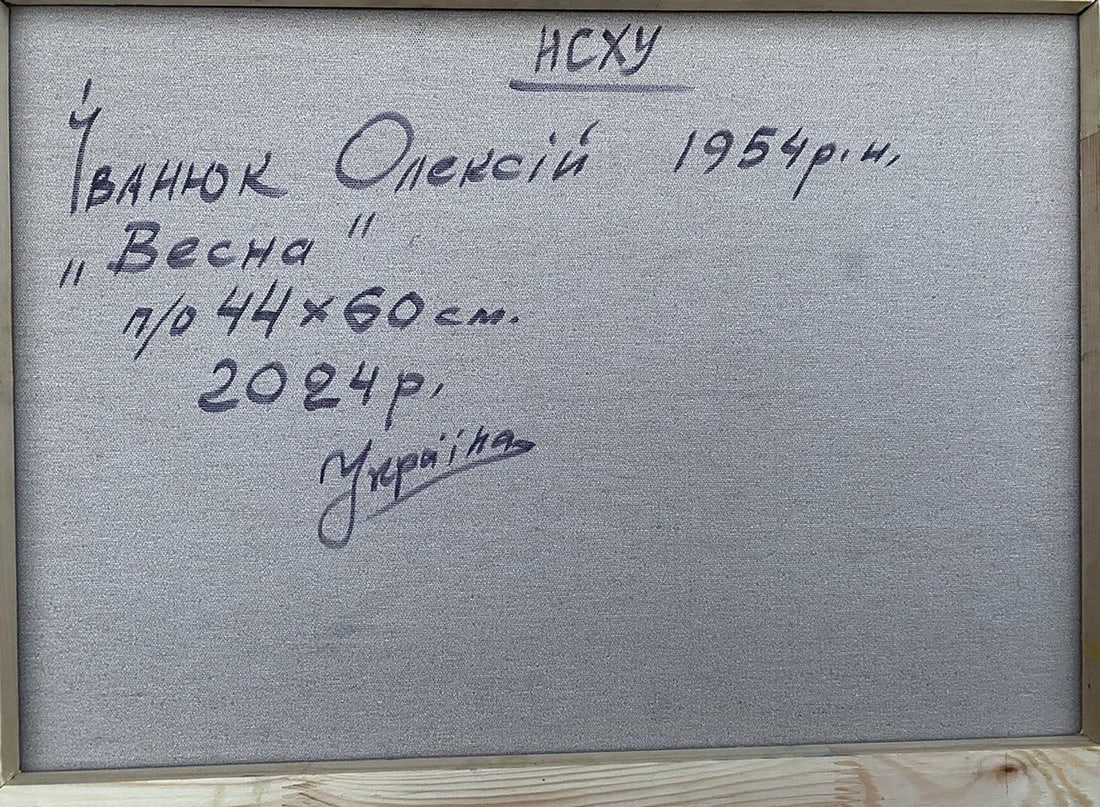 НСХУ
Іванюк Олексій 1954р.н.
„Весна"
п/о 44×60 см.
2024р.
Україна